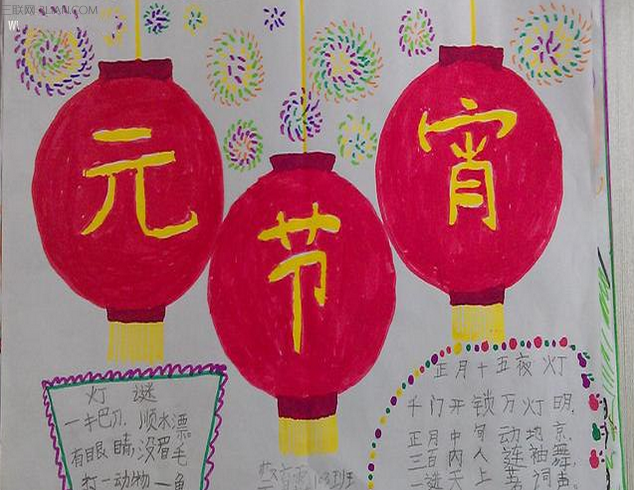 三联网 3LIAN.COM
元 宵
节
灯 谜
一把刀，顺水漂。
有眼睛，没眉毛
打一动物——鱼
正月十五夜灯
千门开锁万灯明，
正月中旬动地京。
三百内人连袖舞，
一进天上著词声。
183班